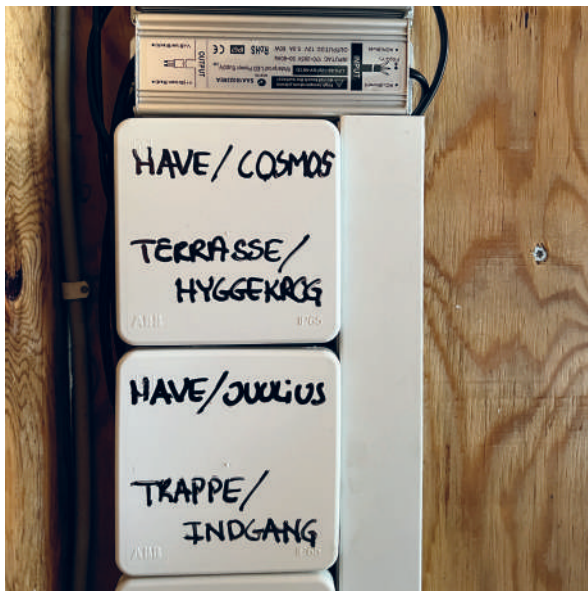 OUTPUT
INPUT
RoHS
HAVE/COSMOS
TERRASSE/
HYGGEKROG
ABB IP65
HAVE/JUULIUS
TRAPPE/
INDGANG
ABB IP65